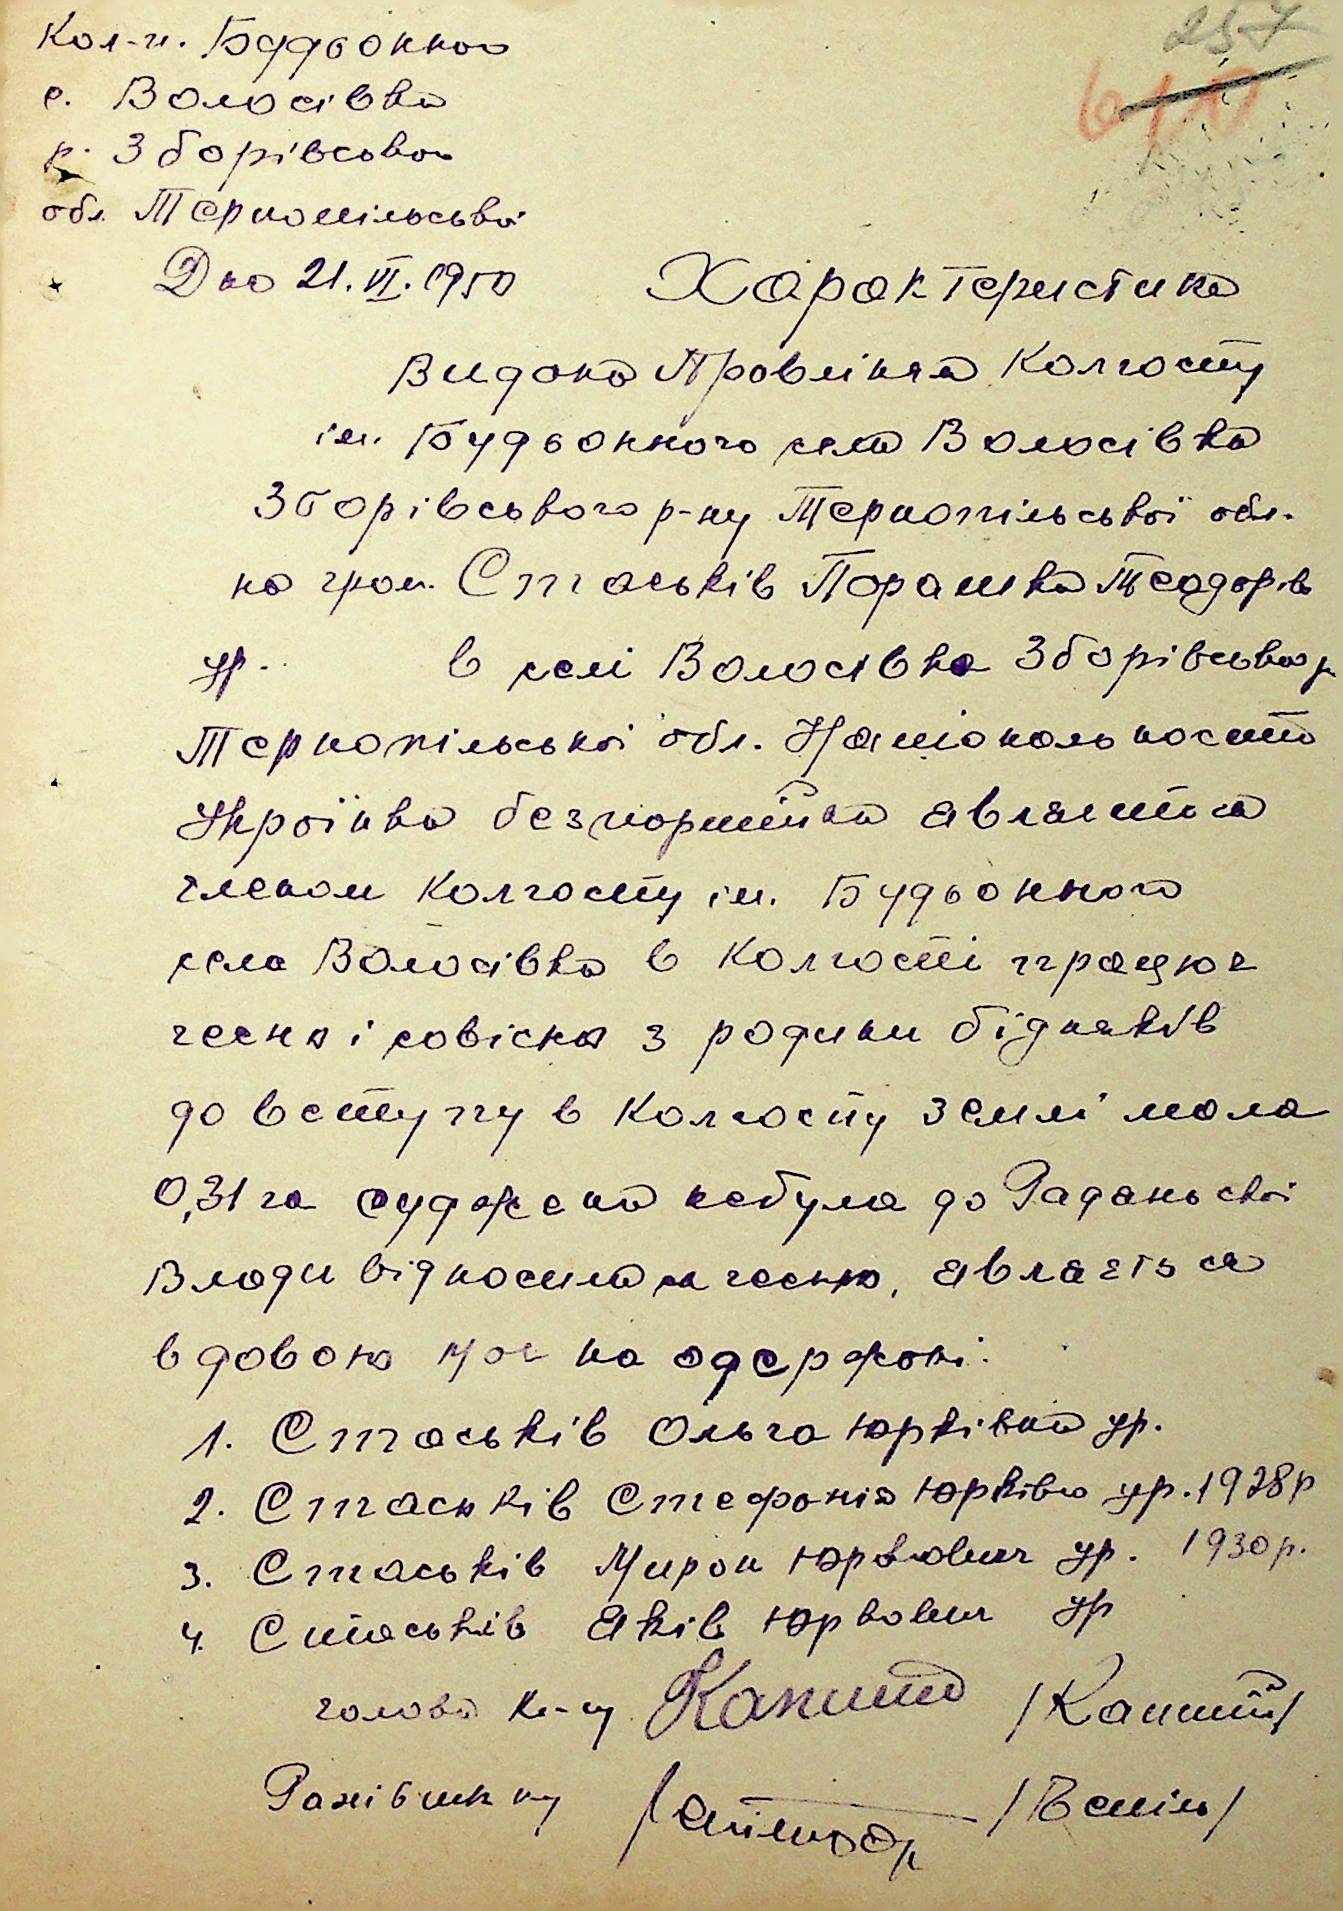 257
610
Кол-п. Будьонного
с. Волосівка
р. Зборівського
обл. Тернопільської
Дня 21.VI.1950 Характеристика
Видана Правлінням Колгоспу
ім. Будьонного села Волосівка
Зборівського р-ну Тернопільської обл.
на гром. Стаськів Парашка Теодорів
ур. в селі Волосівка Зборівського р
Тернопільської обл. Національность
Українка безпартійна являється
членом Колгоспу ім. Будьонного
села Волосівка в Колгоспі працює
чесно і совісно з родини бідняків
до вступу в Колгоспу землі мала
0,31 га суджена небула до Радянської
Влади відноситься чесно, являється
вдовою має на одержані:
1. Стаськів Ольга Юрківна ур.
2. Стаськів Стефанія Юрківна ур. 1928р
3. Стаськів Мирон Юркович ур. 1930р.
4. Стаськів Яків Юркович ур
голова к-пу